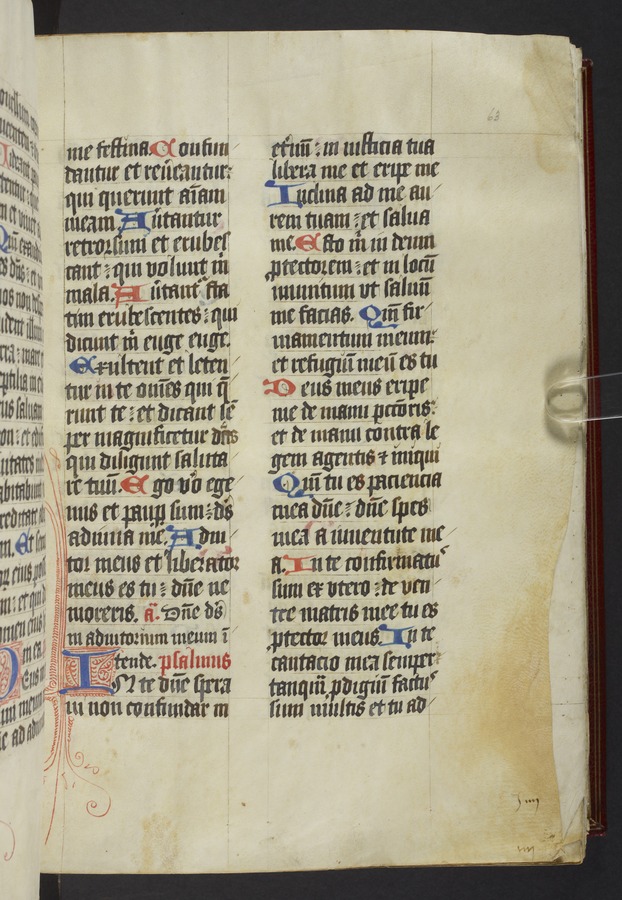 63
me festina. Confun
dantur et reueantur:
qui querunt aīam
meam. Auertantur
retrorsum et erubes
cant : qui volunt m̄
mala. Auertant᷑ sta
tim erubescentes : qui
dicunt m̄ euge euge.
Exultent et leten
tur in te omēs qui q̄
runt te : et dicant sē
per magnificetur dn̄s
qui diligunt saluta
re tuū. Ego vo ege
nus et paup sum : ds̄
adiuua me. Adiu
tor meus et liberator
meus es tu : dn̄e ne
moreris. a. Dn̄e ds̄
in adiutorium meum ī
tende. psalmus
IN te dn̄e spera
ui non confundar in
et̄nū : in iusticia tua
libera me et eripe me
Inclina ad me au
rem tuam : et salua
me. Esto m̄ in deum
ptectorem : et in locū
munitum vt saluū
me facias. Qm̄ fir
mamentum meum:
et refugiū meū es tu
Deus meus eripe
me de manu pctōris:
et de manu contra le
gem agentis ⁊ iniqui
Qm̄ tu es paciencia
mea dn̄e : dn̄e spes
mea a iuuentute me
a. In te confirmatus
sum ex vtero : de ven
tre matris mee tu es
ptector meus. In te
cantacio mea semper:
tanquā pdigiū factus
sum multis et tu ad